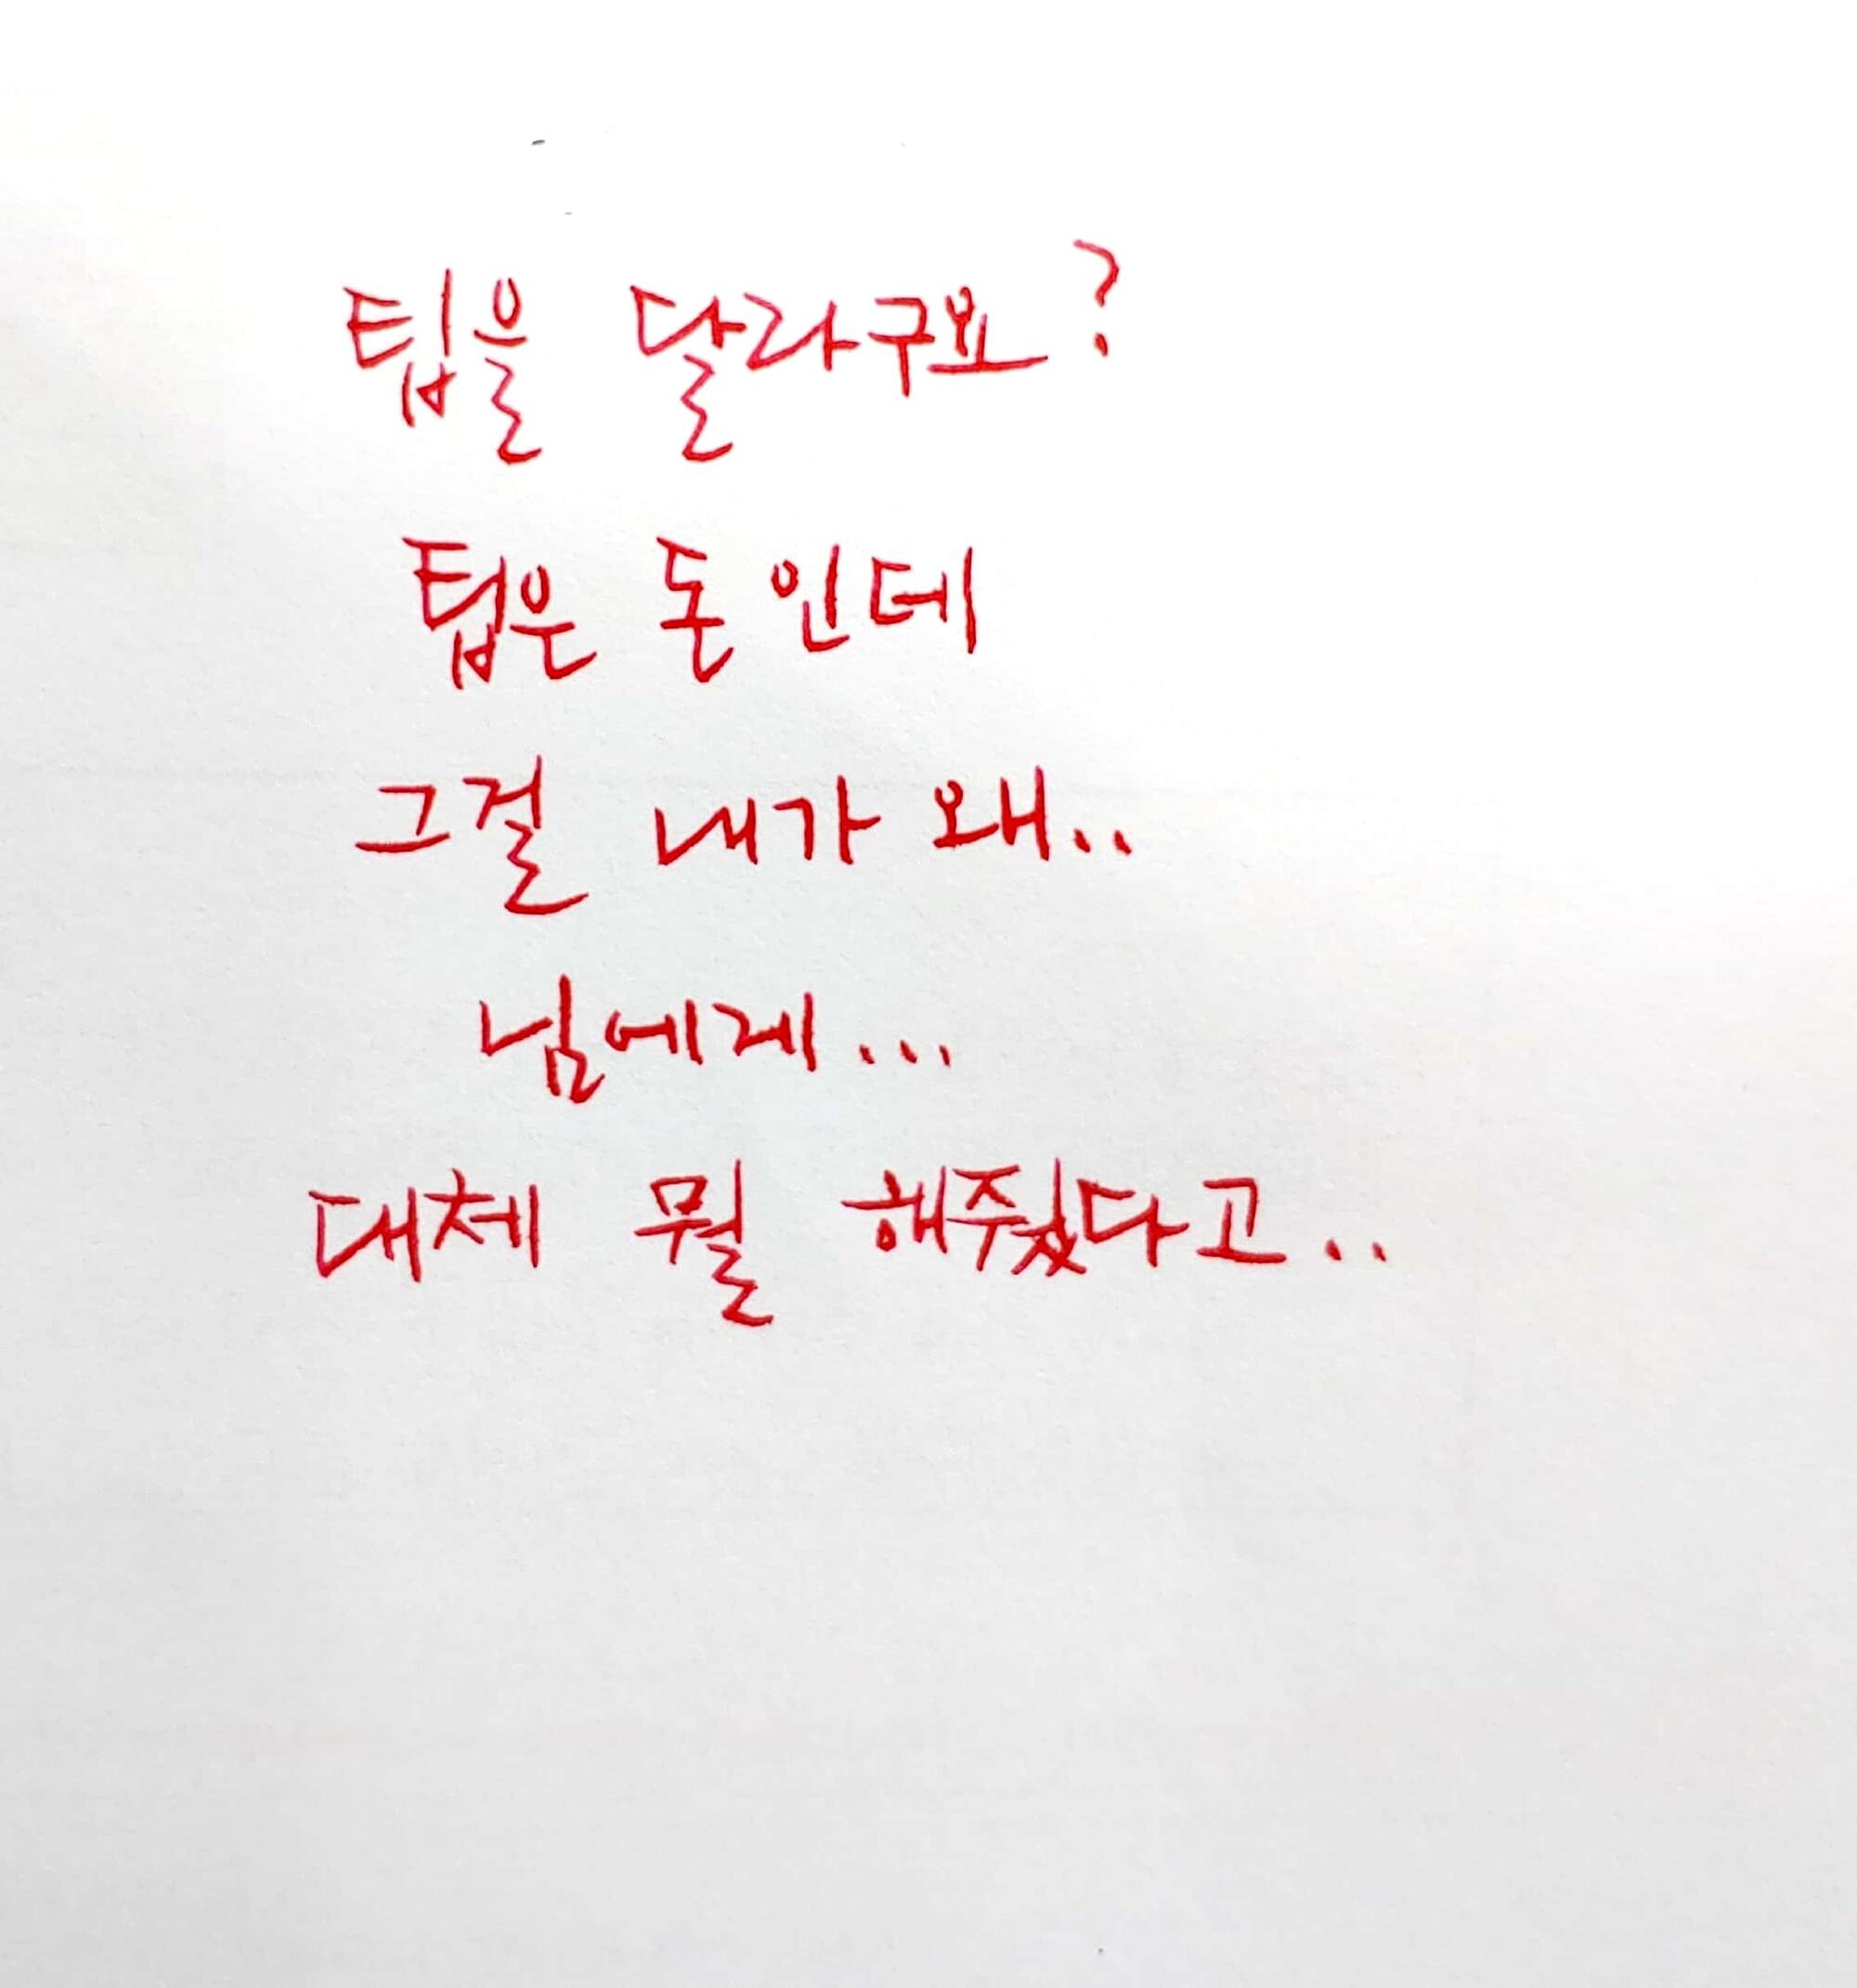 팁을 달라구요?
팁은 돈인데
그걸 내가 왜..
님에게...
대체 뭘 해줬다고..